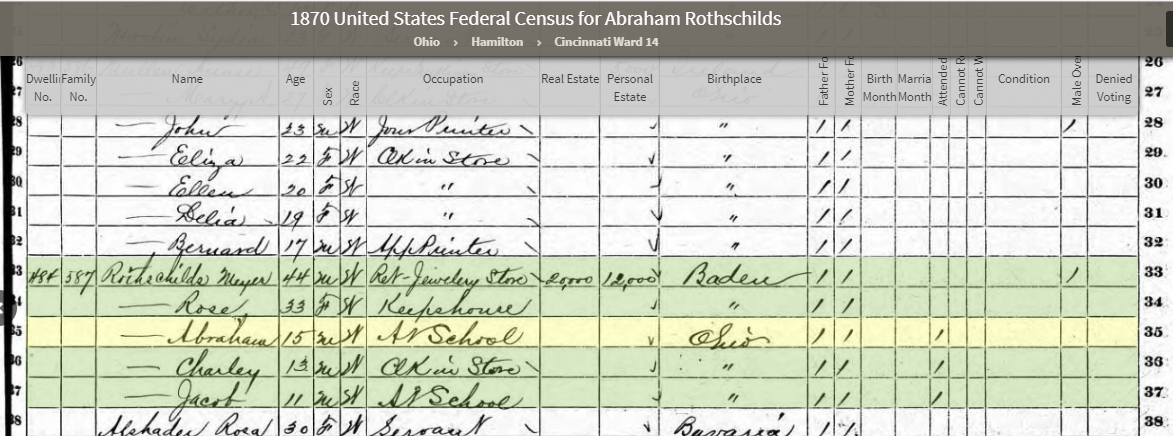 1870 United States Federal Census for Abraham Rothschilds
Ohio > Hamilton > Cincinnati Ward 14
26 26
Dwelli No. Family No. Name Age Sex Race Occupation Real Estate Personal Estate Birthplace Father Fo Mother F Birth Month Marria Month Attended Cannot R Cannot W Condition Male Over Denied Voting
27 27
28 — John 23 M W Jour Printer " / / / 28
29 — Eliza 22 F W Clk in Store " / / 29
30 — Ellen 20 F W " " / / 30
31 — Delia 19 F W " " / / 31
32 — Bernard 17 M W App Printer " / / 32
33 484 587 Rothschilds Meyer 44 M W Ret-Jewelery Store 20,000 12,000 Baden / / / 33
34 — Rose 33 F W Keepshouse " / / 34
35 — Abraham 15 M W At School Ohio / / / 35
36 — Charley 13 M W Clk in Store " / / / 36
37 — Jacob 11 M W At School " / / / 37
38 Alshader Rosa 30 F W Servant Bavaria / / 38